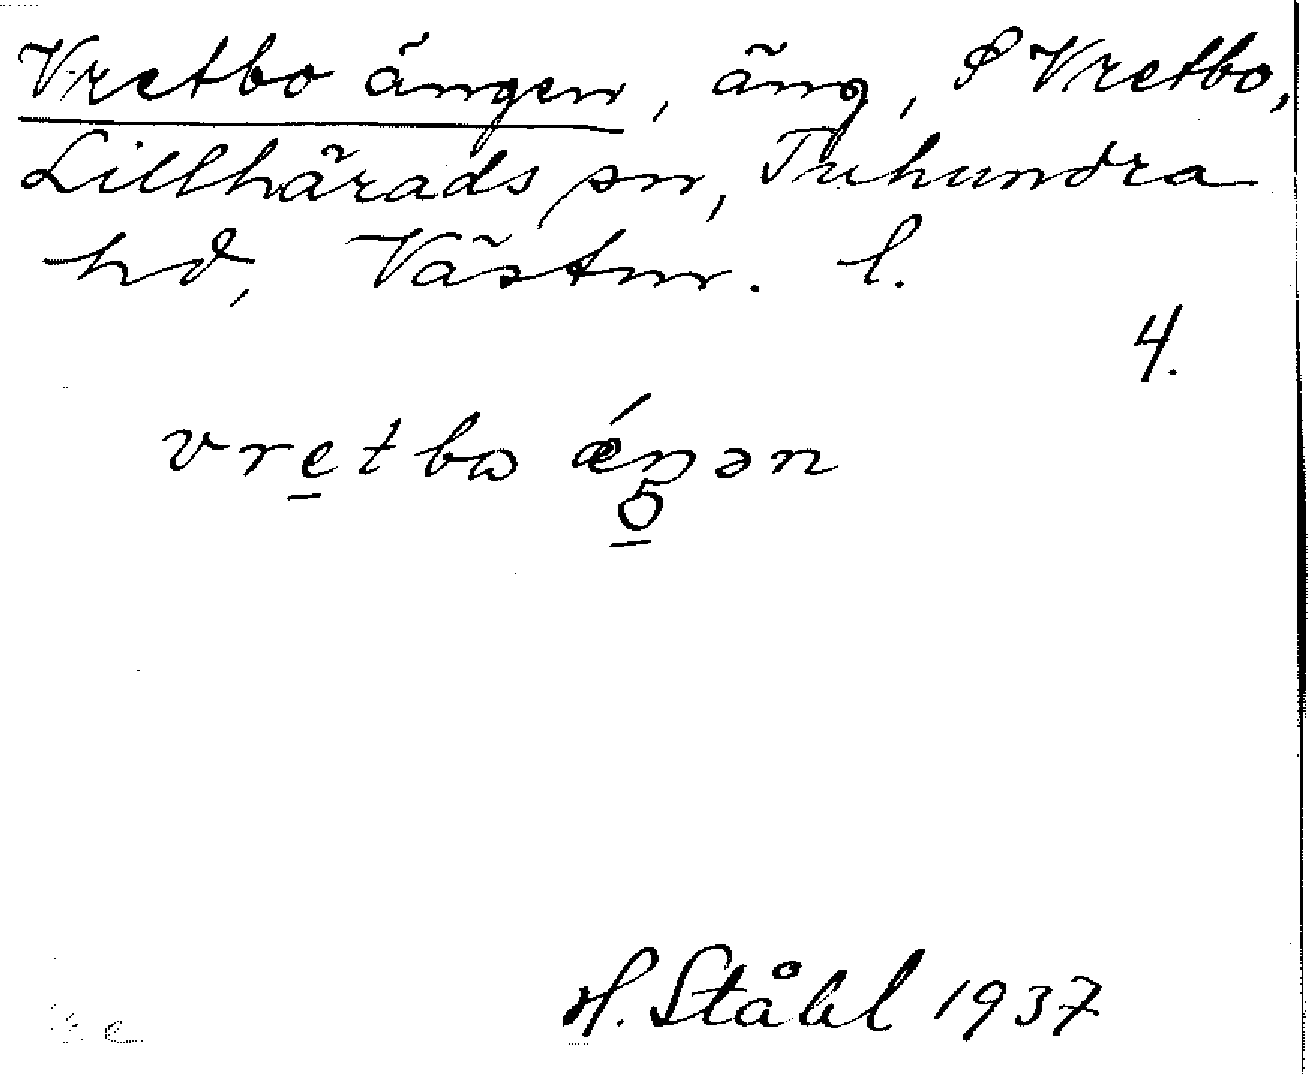 Vretbo ängen, äng, S Vretbo,
Lillhärads sn, Tuhundra
hd, Västm. l.
4.
H. Ståhl 1937